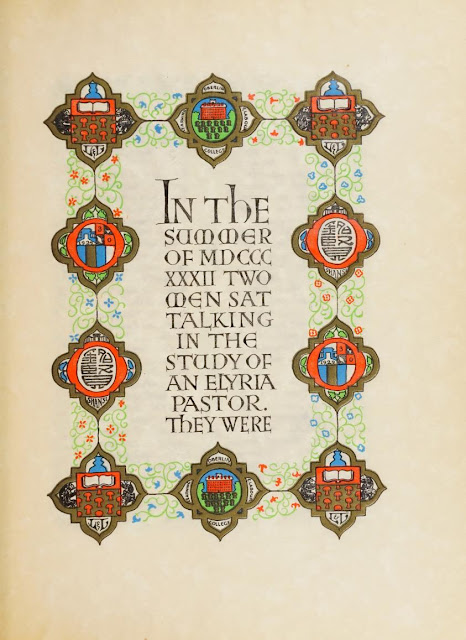 OBERLIN
COLLEGE
IN THE
SUMMER
OF MDCCC
XXXII TWO
MEN SAT
TALKING
IN THE
STUDY OF
AN ELYRIA
PASTOR.
THEY WERE
SHANSI
SHANSI
OBERLIN
COLLEGE